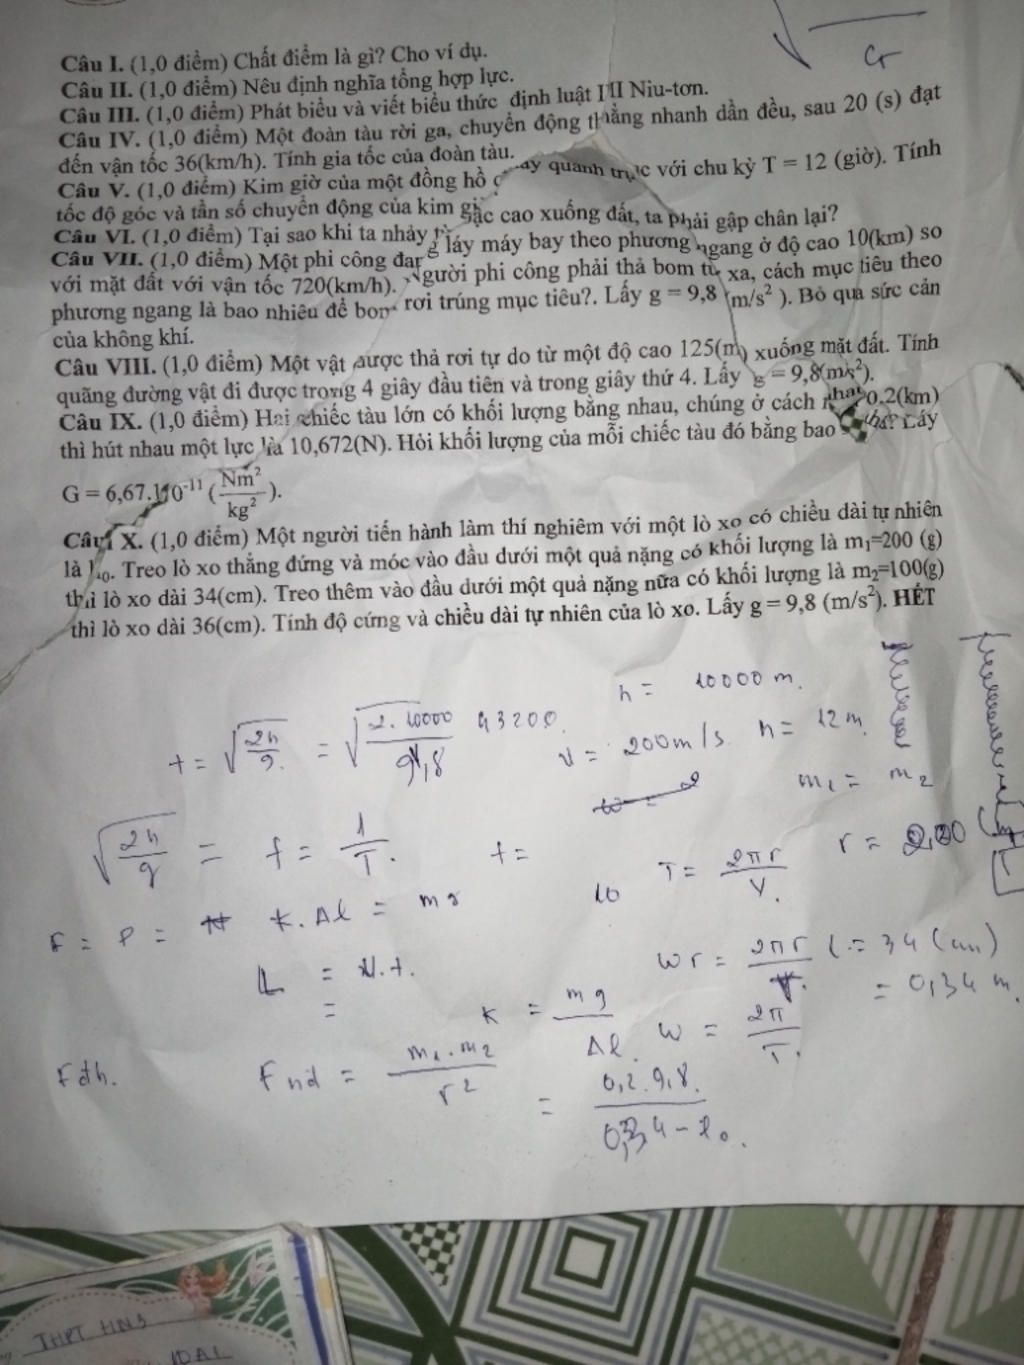 Cr
Câu I. (1,0 điểm) Chất điểm là gì? Cho ví dụ.
Câu II. (1,0 điểm) Nêu định nghĩa tổng hợp lực.
Câu III. (1,0 điểm) Phát biểu và viết biểu thức định luật III Niu-tơn.
Câu IV. (1,0 điểm) Một đoàn tàu rời ga, chuyển động thẳng nhanh dần đều, sau 20 (s) đạt
đến vận tốc 36(km/h). Tính gia tốc của đoàn tàu.
Câu V. (1,0 điểm) Kim giờ của một đồng hồ quay quanh trục với chu kỳ T = 12 (giờ). Tính
tốc độ góc và tần số chuyển động của kim
Câu VI. (1,0 điểm) Tại sao khi ta nhảy bậc cao xuống đất, ta phải gập chân lại?
Câu VII. (1,0 điểm) Một phi công đang lái máy bay theo phương ngang ở độ cao 10(km) so
với mặt đất với vận tốc 720(km/h). Người phi công phải thả bom từ xa, cách mục tiêu theo
phương ngang là bao nhiêu để bom rơi trúng mục tiêu?. Lấy g = 9,8 (m/s² ). Bỏ qua sức cản
của không khí.
Câu VIII. (1,0 điểm) Một vật được thả rơi tự do từ một độ cao 125(m) xuống mặt đất. Tính
quãng đường vật đi được trong 4 giây đầu tiên và trong giây thứ 4. Lấy g = 9,8(m/s²).
Câu IX. (1,0 điểm) Hai chiếc tàu lớn có khối lượng bằng nhau, chúng ở cách nhau 0,2(km)
thì hút nhau một lực là 10,672(N). Hỏi khối lượng của mỗi chiếc tàu đó bằng bao Lấy
G = 6,67.10⁻¹¹ (Nm²/kg²).
Câu X. (1,0 điểm) Một người tiến hành làm thí nghiêm với một lò xo có chiều dài tự nhiên
là l₀. Treo lò xo thẳng đứng và móc vào đầu dưới một quả nặng có khối lượng là m₁=200 (g)
thì lò xo dài 34(cm). Treo thêm vào đầu dưới một quả nặng nữa có khối lượng là m₂=100(g)
thì lò xo dài 36(cm). Tính độ cứng và chiều dài tự nhiên của lò xo. Lấy g = 9,8 (m/s²). HẾT
h = 10000 m.
t = √(2h/g) = √(2.10000/9,8) 43200
v = 200m/s. h = 12 m.
m₁ = m₂
√(2h/g) = f = 1/T. t =
T = 2πr/v. r = 0,20
10
F = P = K.Δl = mg
L = v.t.
=
ωr = 2πr l = 34 (cm)
= 0,34 m.
K = mg/Δl. ω = 2π/T.
Fđh. Fhd = m₁.m₂/r²
= 0,2.9,8./0,34 - l₀.
THPT HN3